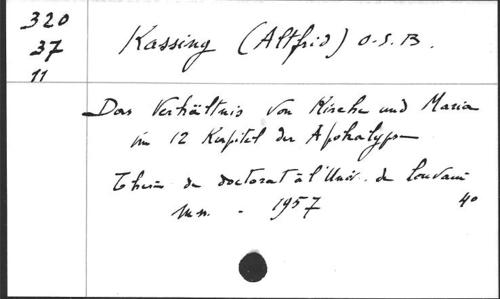 320
37
11
Kassing (Altfrid) O.S.B.
Das Verhältnis von Kirche und Maria
im 12 Kapitel der Apokalypse
Thèse de doctorat à l'Univ. de Louvain
1957
40